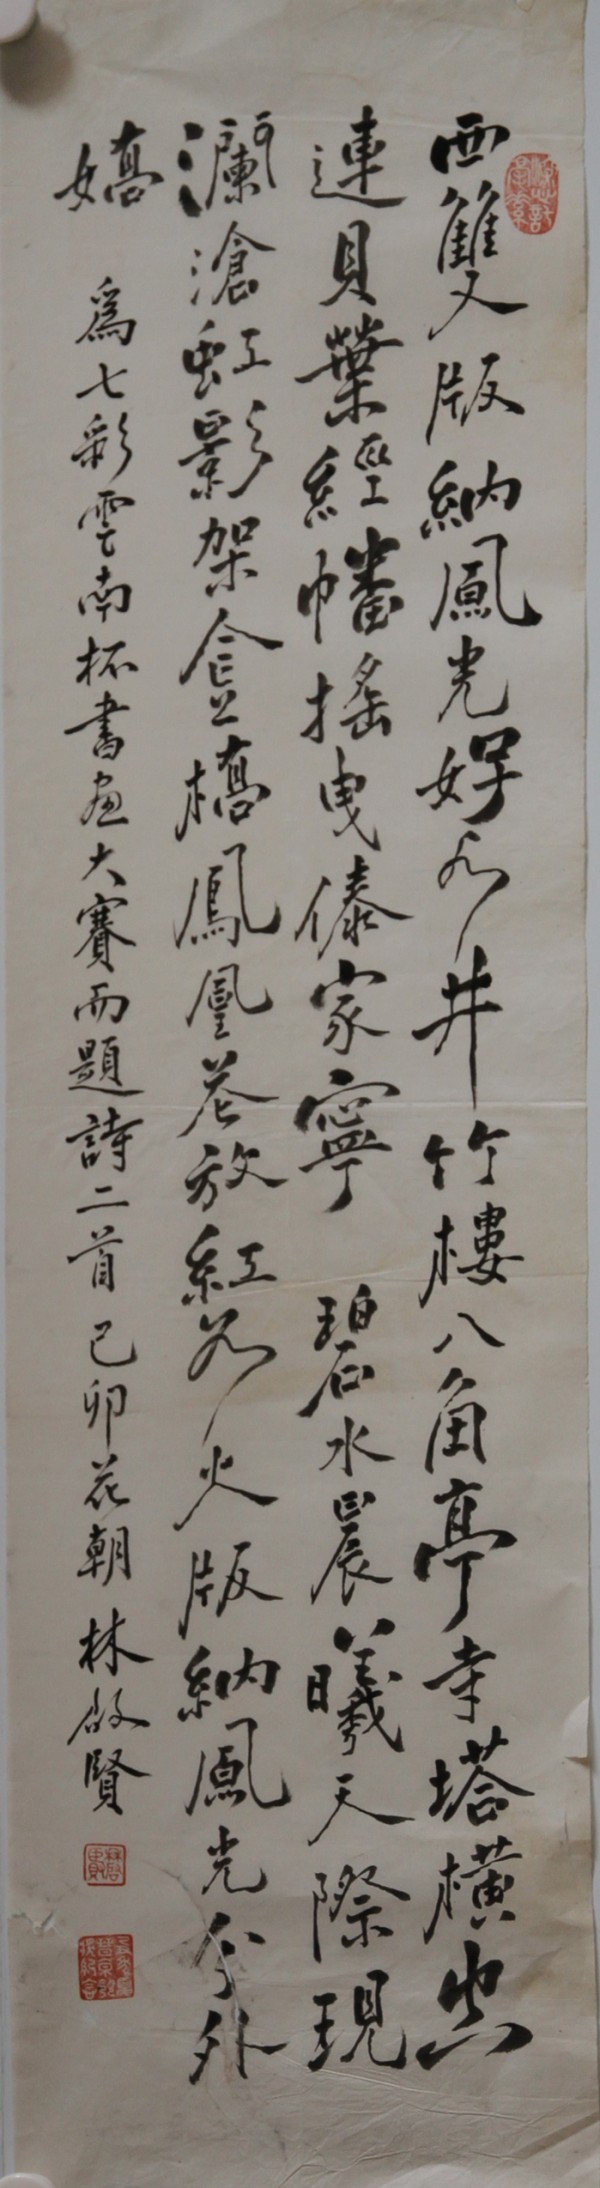 西雙版納風光好水井竹樓八角亭寺塔橫空
連貝葉經幡搖曳傣家寧 碧水晨曦天際現
瀾滄虹影架金橋鳳凰花放紅如火版納風光分外
嬌
為七彩雲南杯書画大賽而題詩二首己卯花朝 林啟賢